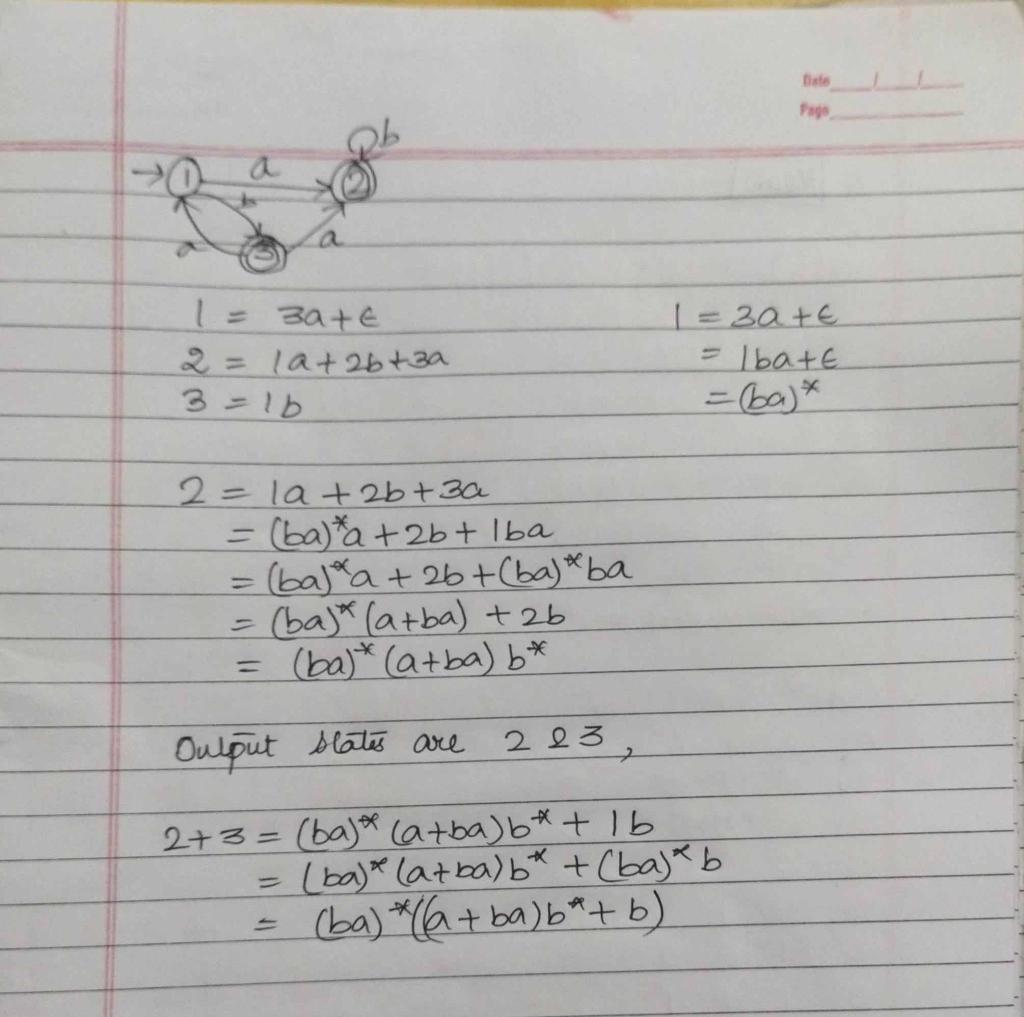 Date / /
Page
b
→ 1 a 2
b
a 3 a
1 = 3a+ϵ
1 = 3a+ϵ
2 = 1a+2b+3a
= 1ba+ϵ
3 = 1b
= (ba)*
2 = 1a + 2b + 3a
= (ba)*a + 2b + 1ba
= (ba)*a + 2b + (ba)*ba
= (ba)*(a+ba) + 2b
= (ba)*(a+ba) b*
Output states are 2 & 3,
2+3 = (ba)*(a+ba)b* + 1b
= (ba)*(a+ba)b* + (ba)*b
= (ba)*((a+ba)b*+b)